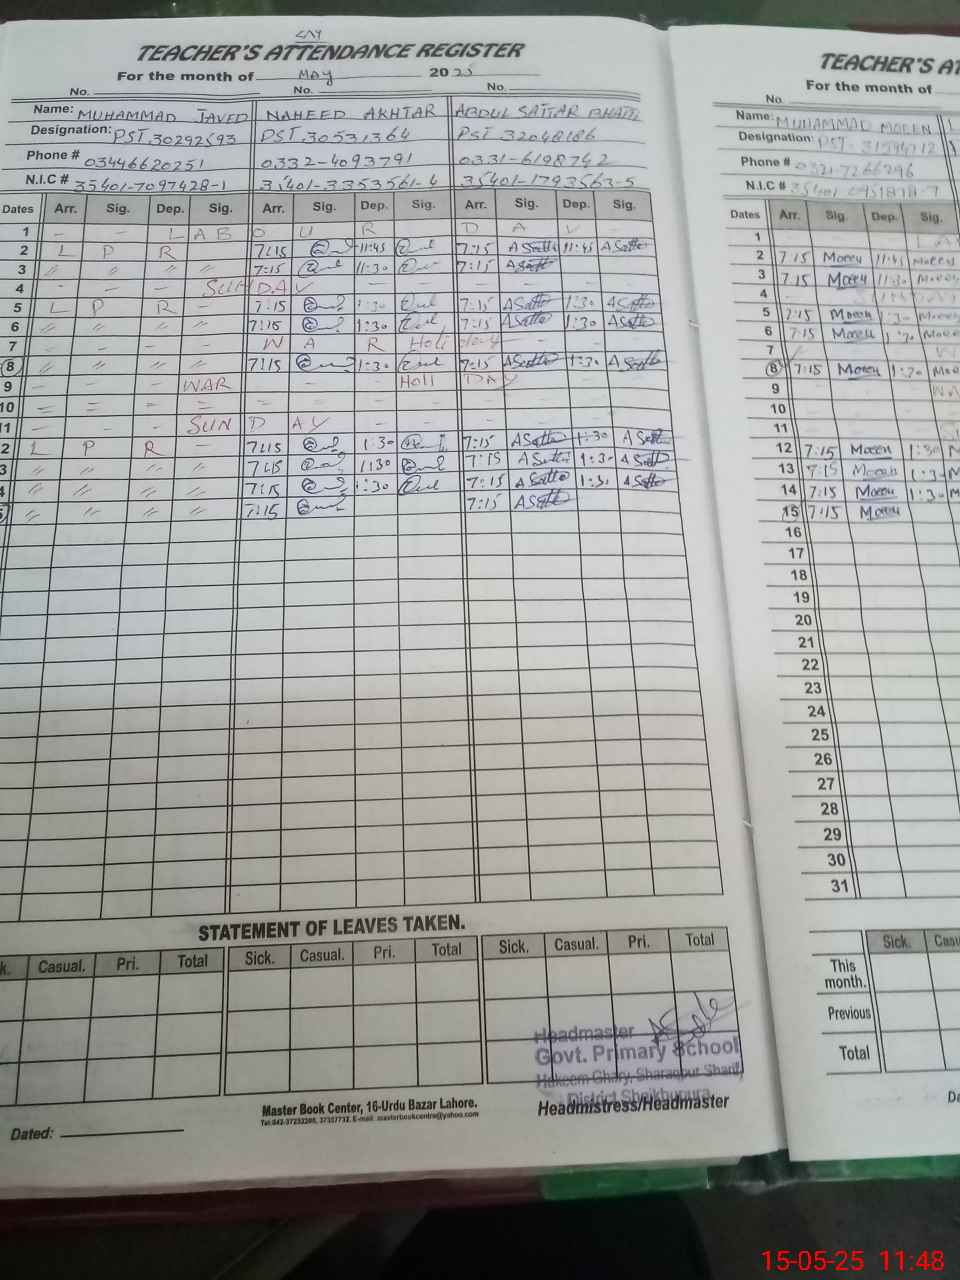 TEACHER'S ATTENDANCE REGISTER
For the month of MAY 2025
No. No. No.
Name: MUHAMMAD JAVED NAHEED AKHTAR ABDUL SATTAR BHATTI
Designation: PST 30292593 PST 30531364 PST 32048186
Phone # 03446620251 0332-4093791 0331-6198742
N.I.C # 35401-7097428-1 35401-3353561-4 35401-1793563-5
Dates Arr. Sig. Dep. Sig. Arr. Sig. Dep. Sig. Arr. Sig. Dep. Sig.
1 - - L A B O U R D A Y -
2 L P R 7:15 11:45 7:15 ASatta 11:45 ASatta
3 〃 〃 〃 〃 7:15 11:30 7:15 ASatta
4 - - - SUNDAY - - - - - -
5 L P R 7:15 1:30 7:15 ASatta 1:30 ASatta
6 〃 〃 〃 〃 7:15 1:30 7:15 ASatta 1:30 ASatta
7 - - - - W A R Holiday - - -
8 〃 〃 〃 〃 7:15 1:30 7:15 ASatta 1:30 ASatta
9 - - - WAR - - - Holi DAY - -
10 = = = = - - - - - - - -
11 - - - SUN D AY - - - - - -
12 L P R - 7:15 1:30 7:15 ASatta 1:30 ASatta
3 〃 〃 〃 〃 7:15 1:30 7:15 ASatta 1:30 ASatta
4 〃 〃 〃 〃 7:15 1:30 7:15 ASatta 1:30 ASatta
5 〃 〃 〃 〃 7:15 7:15 ASatta
STATEMENT OF LEAVES TAKEN.
k. Casual. Pri. Total Sick. Casual. Pri. Total Sick. Casual. Pri. Total
Headmaster
Govt. Primary School
Hakeem Ghary, Sharaqpur Sharif,
District Sheikhupura
Headmistress/Headmaster
Master Book Center, 16-Urdu Bazar Lahore.
Dated:
TEACHER'S AT
For the month of
No.
Name: MUHAMMAD MOEEN
Designation: PST- 31594712
Phone # 0321-7266296
N.I.C #
Dates Arr. Sig. Dep. Sig.
1 LA
2 7:15 Moeen 11:45 Moeen
3 7:15 Moeen 11:30 Moeen
4 - SUNDAY
5 7:15 Moeen 1:30 Moeen
6 7:15 Moeen 1:30 Moee
7 W
8 7:15 Moeen 1:30 Moe
9 - - - WA
10 - - -
11 - - -
12 7:15 Moeen 1:30 M
13 7:15 Moeen 1:30 M
14 7:15 Moeen 1:30 M
15 7:15 Moeen
16
17
18
19
20
21
22
23
24
25
26
27
28
29
30
31
Sick. Casu
This month.
Previous
Total
Da
15-05-25 11:48